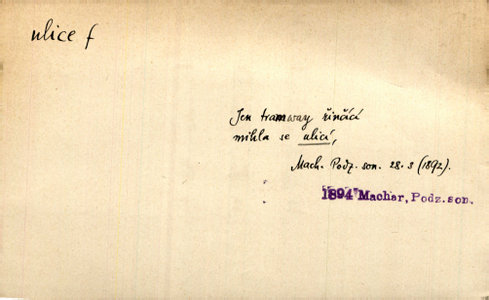 ulice f
Jen tramway řinčící
mihla se ulicí,
Mach. Podz. son. 28.3 (1892).
1894 Machar, Podz. son.